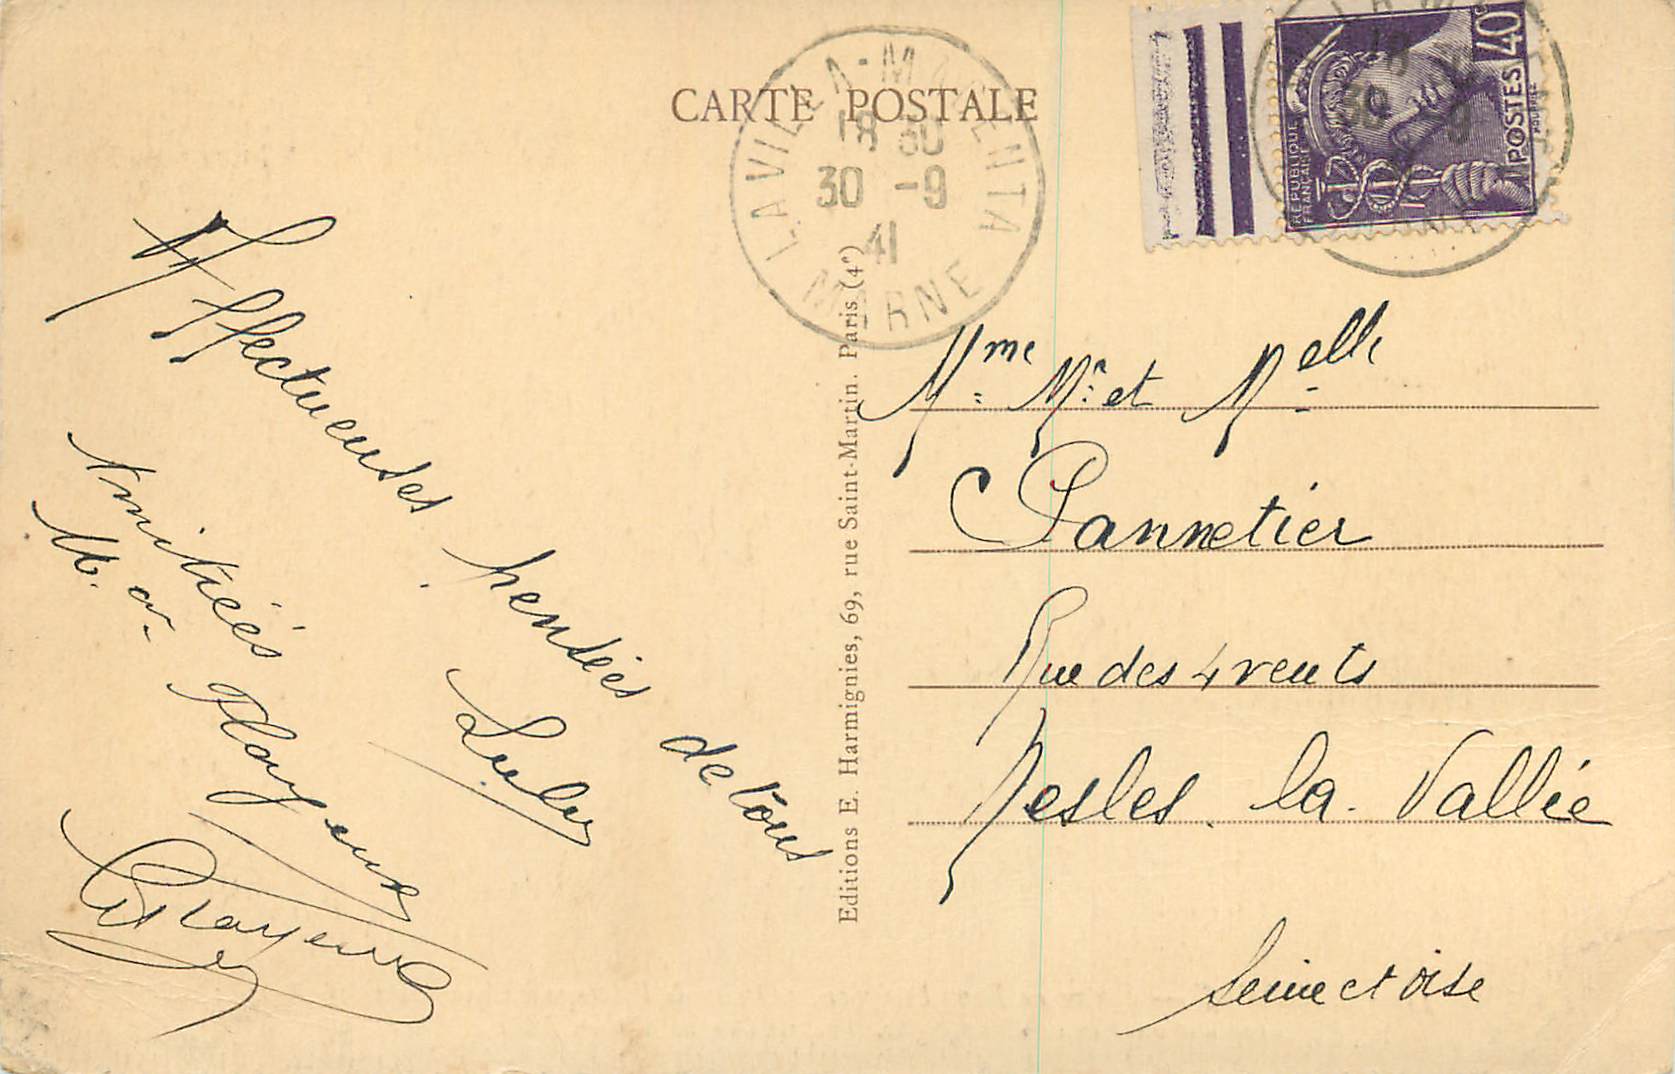 CARTE POSTALE
LAVILLA-MAGENTA
18 30
30 -9
41
MARNE
40c
POSTES
RÉPUBLIQUE
FRANÇAISE
18
30 -9
Affectueuses pensées de tous
Lulu
Amitiés
M. Playeux
Editions E. Harmignies, 69, rue Saint-Martin. Paris (4e)
Mme Mr et Melle
Pannetier
Rue des 4 vents
Nesles. la. Vallée
Seine et oise